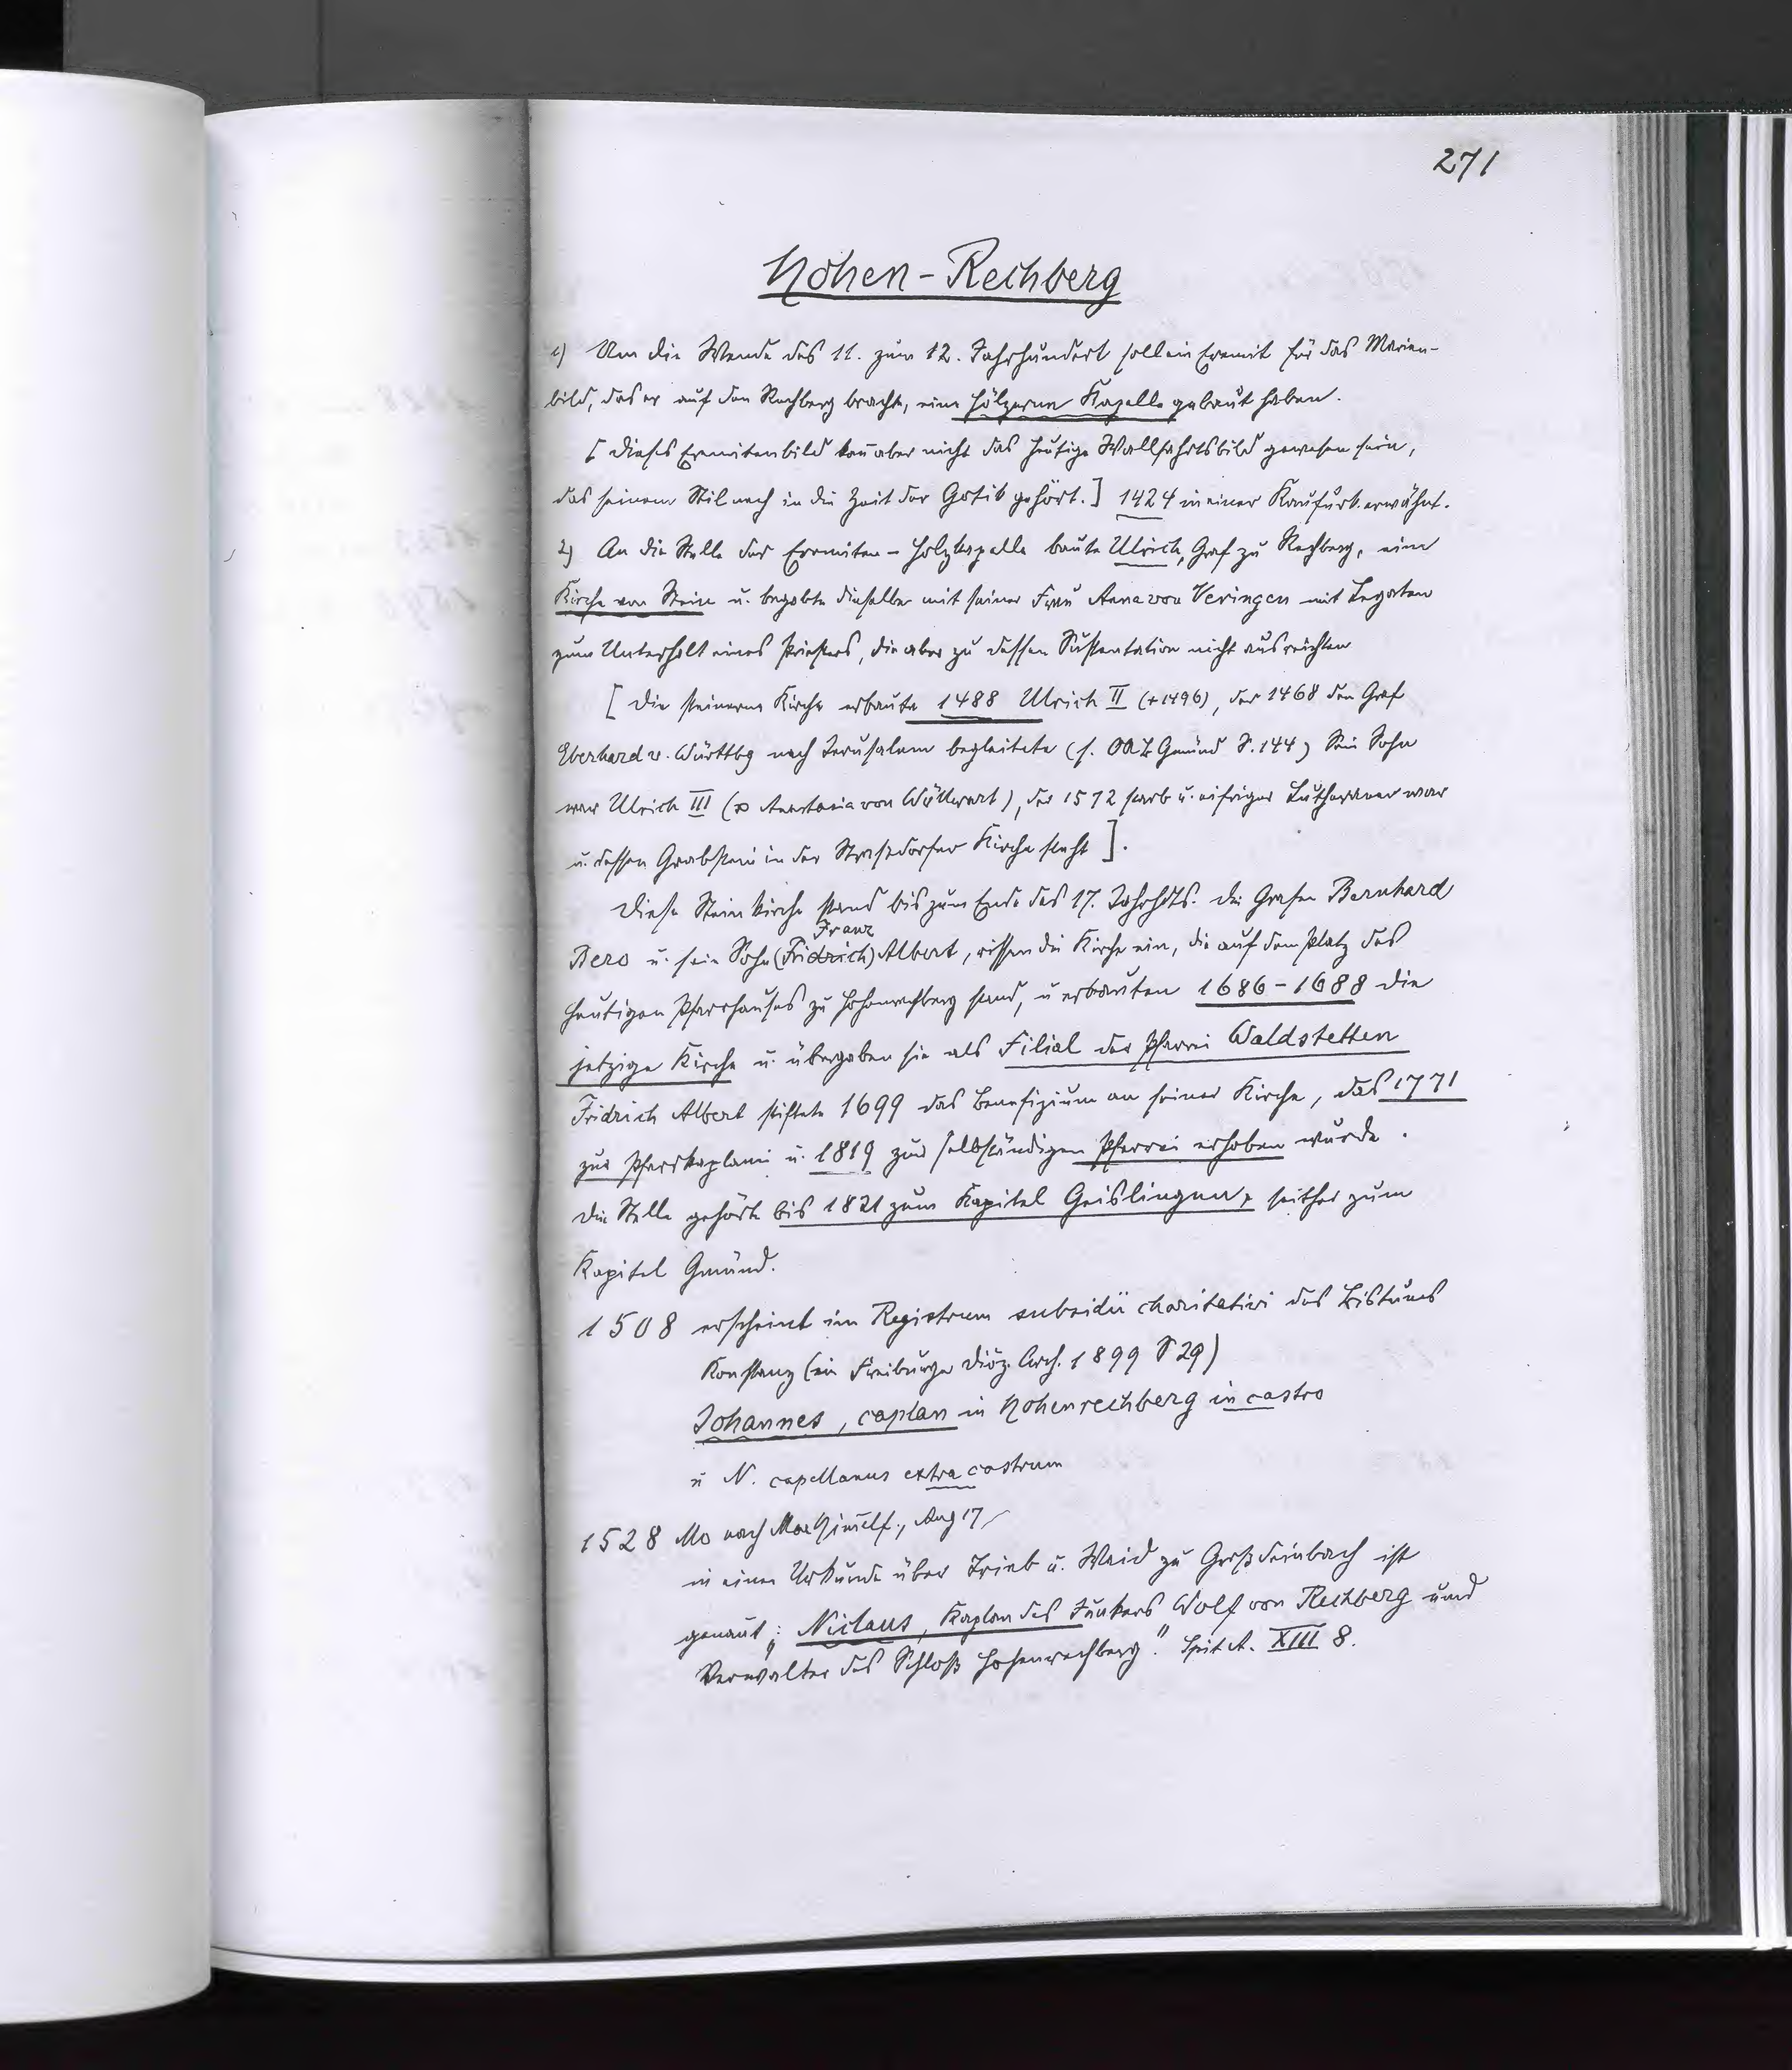 271
Hohen-Rechberg
1) Um die Wende des 11. zum 12. Jahrhundert soll ein Eremit für das Marien-
bild, das er auf den Rechberg brachte, eine hölzerne Kapelle gebaut haben.
[ Dieses Eremitenbild kan̄ aber nicht das heutige Wallfahrtsbild gewesen sein,
das seinem Stil nach in die Zeit der Gotik gehört.] 1424 in einer Kaufurk. erwähnt.
2) An die Stelle der Eremiten-Holzkapelle baute Ulrich, Graf zu Rechberg, eine
Kirche von Stein u. begabte dieselbe mit seiner Frau Anna von Veringen mit Legaten
zum Unterhalt eines Priesters, die aber zu dessen Sustentation nicht ausreichten
[ Die steinerne Kirche erbaute 1488 Ulrich II (+1496), der 1468 den Graf
Eberhard v. Württbg nach Jerusalem begleitete (s. OAB Gmünd S. 144) Sein Sohn
war Ulrich III (∞ Anastasia von Wöllwart), der 1572 starb u. eifriger Lutheraner war
u. dessen Grabstein in der Straßdorfer Kirche steht ].
Diese Steinkirche stand bis zum Ende des 17. Jahrhdts. Die Grafen Bernhard
Franz
Bero u. sein Sohn (Fridrich) Albert, rissen die Kirche ein, die auf dem Platz des
heutigen Pfarrhauses zu Hohenrechberg stand, u erbauten 1686-1688 die
jetzige Kirche u. übergaben sie als Filial der Pfarrei Waldstetten
Fridrich Albert stiftete 1699 das Benefizium an seiner Kirche, das 1771
zur Pfarrkaplanei u. 1819 zur selbständigen Pfarrei erhoben wurde.
Die Stelle gehörte bis 1821 zum Kapitel Geislingen, seither zum
Kapitel Gmünd.
1508 erscheint im Registrum subsidii charitativi des Bistums
Konstanz (in Freiburger Diöz. Arch. 1899 S 29)
Johannes, caplan in Hohenrechberg in castro
u N. capellanus extra castrum
1528 Mo nach Mar Him̄elf., Aug 17
in einer Urkunde über Trieb u. Waid zu Großdeinbach ist
genan̄t: „Niclaus, Kaplan des Junkers Wolf von Rechberg und
Verwalter des Schloß Hohenrechberg". Spit A. XIII 8.